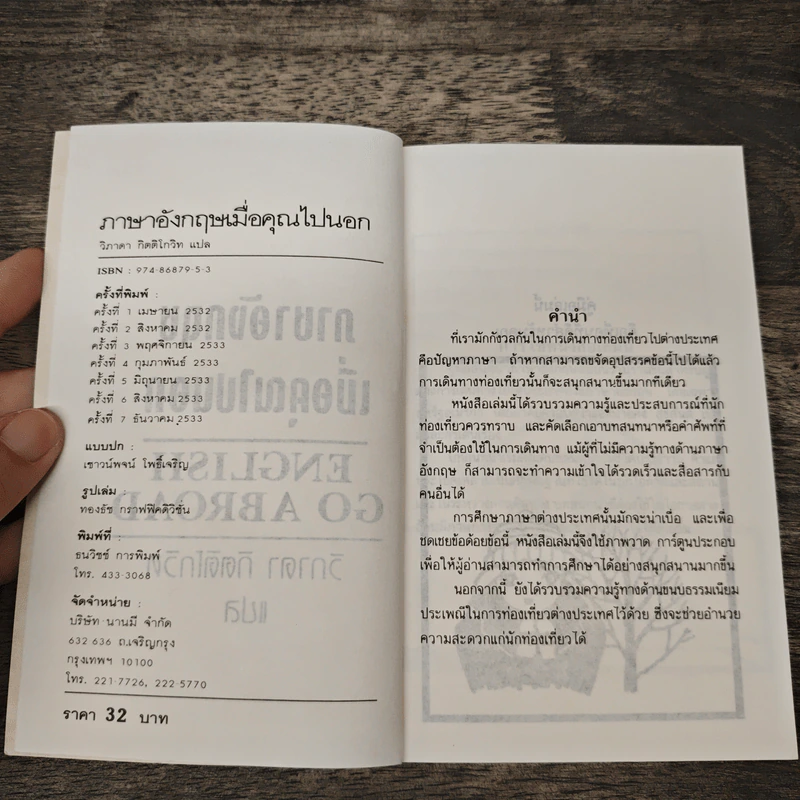 ภาษาอังกฤษเมื่อคุณไปนอก
วิภาดา กิตติโกวิท แปล
ISBN : 974-86879-5-3
ครั้งที่พิมพ์ :
ครั้งที่ 1 เมษายน 2532
ครั้งที่ 2 สิงหาคม 2532
ครั้งที่ 3 พฤศจิกายน 2533
ครั้งที่ 4 กุมภาพันธ์ 2533
ครั้งที่ 5 มิถุนายน 2533
ครั้งที่ 6 สิงหาคม 2533
ครั้งที่ 7 ธันวาคม 2533
แบบปก :
เชาวน์พจน์ โพธิ์เจริญ
รูปเล่ม
ทองธัช กราฟฟิคดิวิชั่น
พิมพ์ที่ :
ธนวิชช์ การพิมพ์
โทร. 433-3068
จัดจำหน่าย :
บริษัท นานมี จำกัด
632-636 ถ.เจริญกรุง
กรุงเทพฯ 10100
โทร. 221-7726, 222-5770
ราคา 32 บาท
คำนำ
ที่เรามักกังวลกันในการเดินทางท่องเที่ยวไปต่างประเทศ
คือปัญหาภาษา ถ้าหากสามารถขจัดอุปสรรคข้อนี้ไปได้แล้ว
การเดินทางท่องเที่ยวนั้นก็จะสนุกสนานขึ้นมากทีเดียว
หนังสือเล่มนี้ได้รวบรวมความรู้และประสบการณ์ที่นัก
ท่องเที่ยวควรทราบ และคัดเลือกเอาบทสนทนาหรือคำศัพท์ที่
จำเป็นต้องใช้ในการเดินทาง แม้ผู้ที่ไม่มีความรู้ทางด้านภาษา
อังกฤษ ก็สามารถจะทำความเข้าใจได้รวดเร็วและสื่อสารกับ
คนอื่นได้
การศึกษาภาษาต่างประเทศนั้นมักจะน่าเบื่อ และเพื่อ
ชดเชยข้อด้อยข้อนี้ หนังสือเล่มนี้จึงใช้ภาพวาด การ์ตูนประกอบ
เพื่อให้ผู้อ่านสามารถทำการศึกษาได้อย่างสนุกสนานมากขึ้น
นอกจากนี้ ยังได้รวบรวมความรู้ทางด้านขนบธรรมเนียม
ประเพณีในการท่องเที่ยวต่างประเทศไว้ด้วย ซึ่งจะช่วยอำนวย
ความสะดวกแก่นักท่องเที่ยวได้